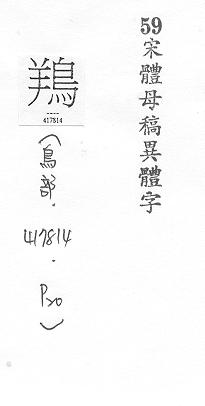 59宋體母稿異體字
鴹
417814
(鳥部.417814.P20)